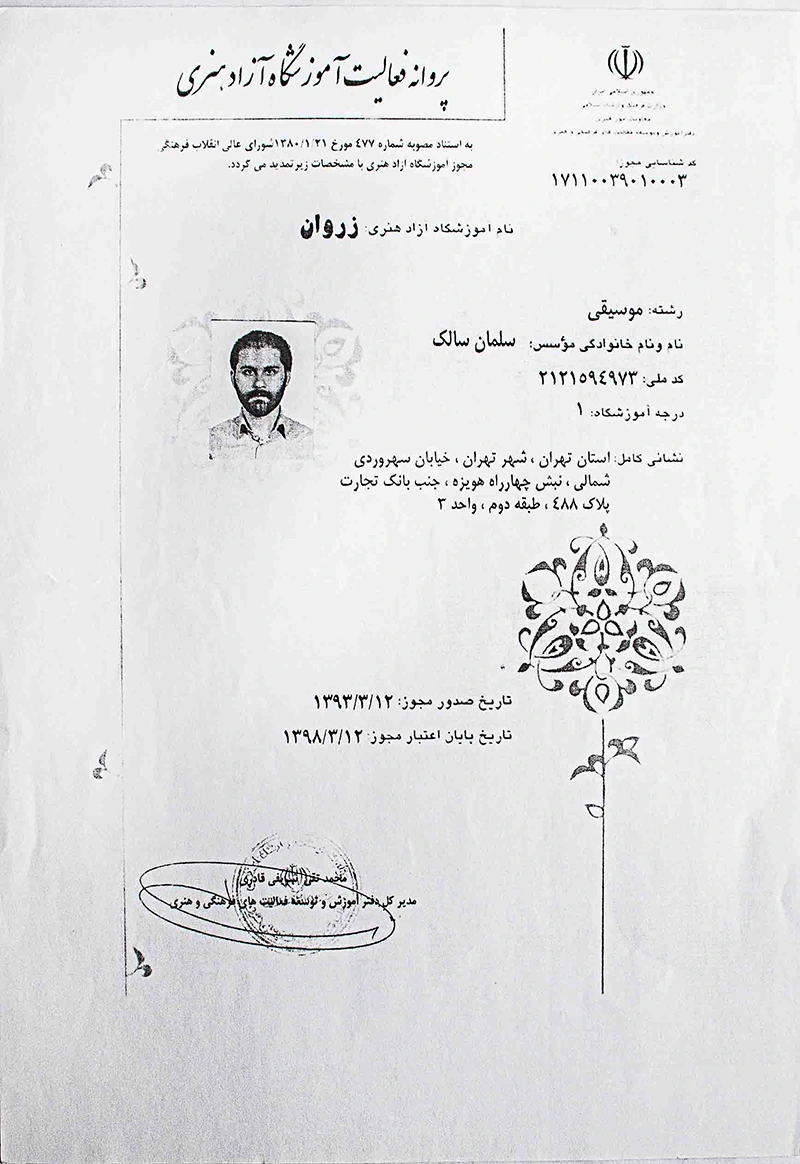 پروانه فعالیت آموزشگاه آزاد هنری
جمهوری اسلامی ایران
وزارت فرهنگ و ارشاد اسلامی
معاونت امور هنری
دفتر آموزش و توسعه فعالیت های فرهنگی و هنری
به استناد مصوبه شماره ۴۷۷ مورخ ۱۳۸۰/۱/۲۱شورای عالی انقلاب فرهنگی
مجوز آموزشگاه آزاد هنری با مشخصات زیر تمدید می گردد.
کد شناسایی مجوز:
۱۷۱۱۰۰۳۹۰۱۰۰۰۳
نام آموزشگاه آزاد هنری: زروان
رشته: موسیقی
نام ونام خانوادگی مؤسس: سلمان سالک
کد ملی: ۲۱۲۱۵۹۴۹۷۳
درجه آموزشگاه: ۱
نشانی کامل: استان تهران ، شهر تهران ، خیابان سهروردی
شمالی ، نبش چهارراه هویزه ، جنب بانک تجارت
پلاک ۴۸۸ ، طبقه دوم ، واحد ۳
تاریخ صدور مجوز: ۱۳۹۳/۳/۱۲
تاریخ پایان اعتبار مجوز: ۱۳۹۸/۳/۱۲
محمد تقی قادری
مدیر کل دفتر آموزش و توسعه فعالیت های فرهنگی و هنری